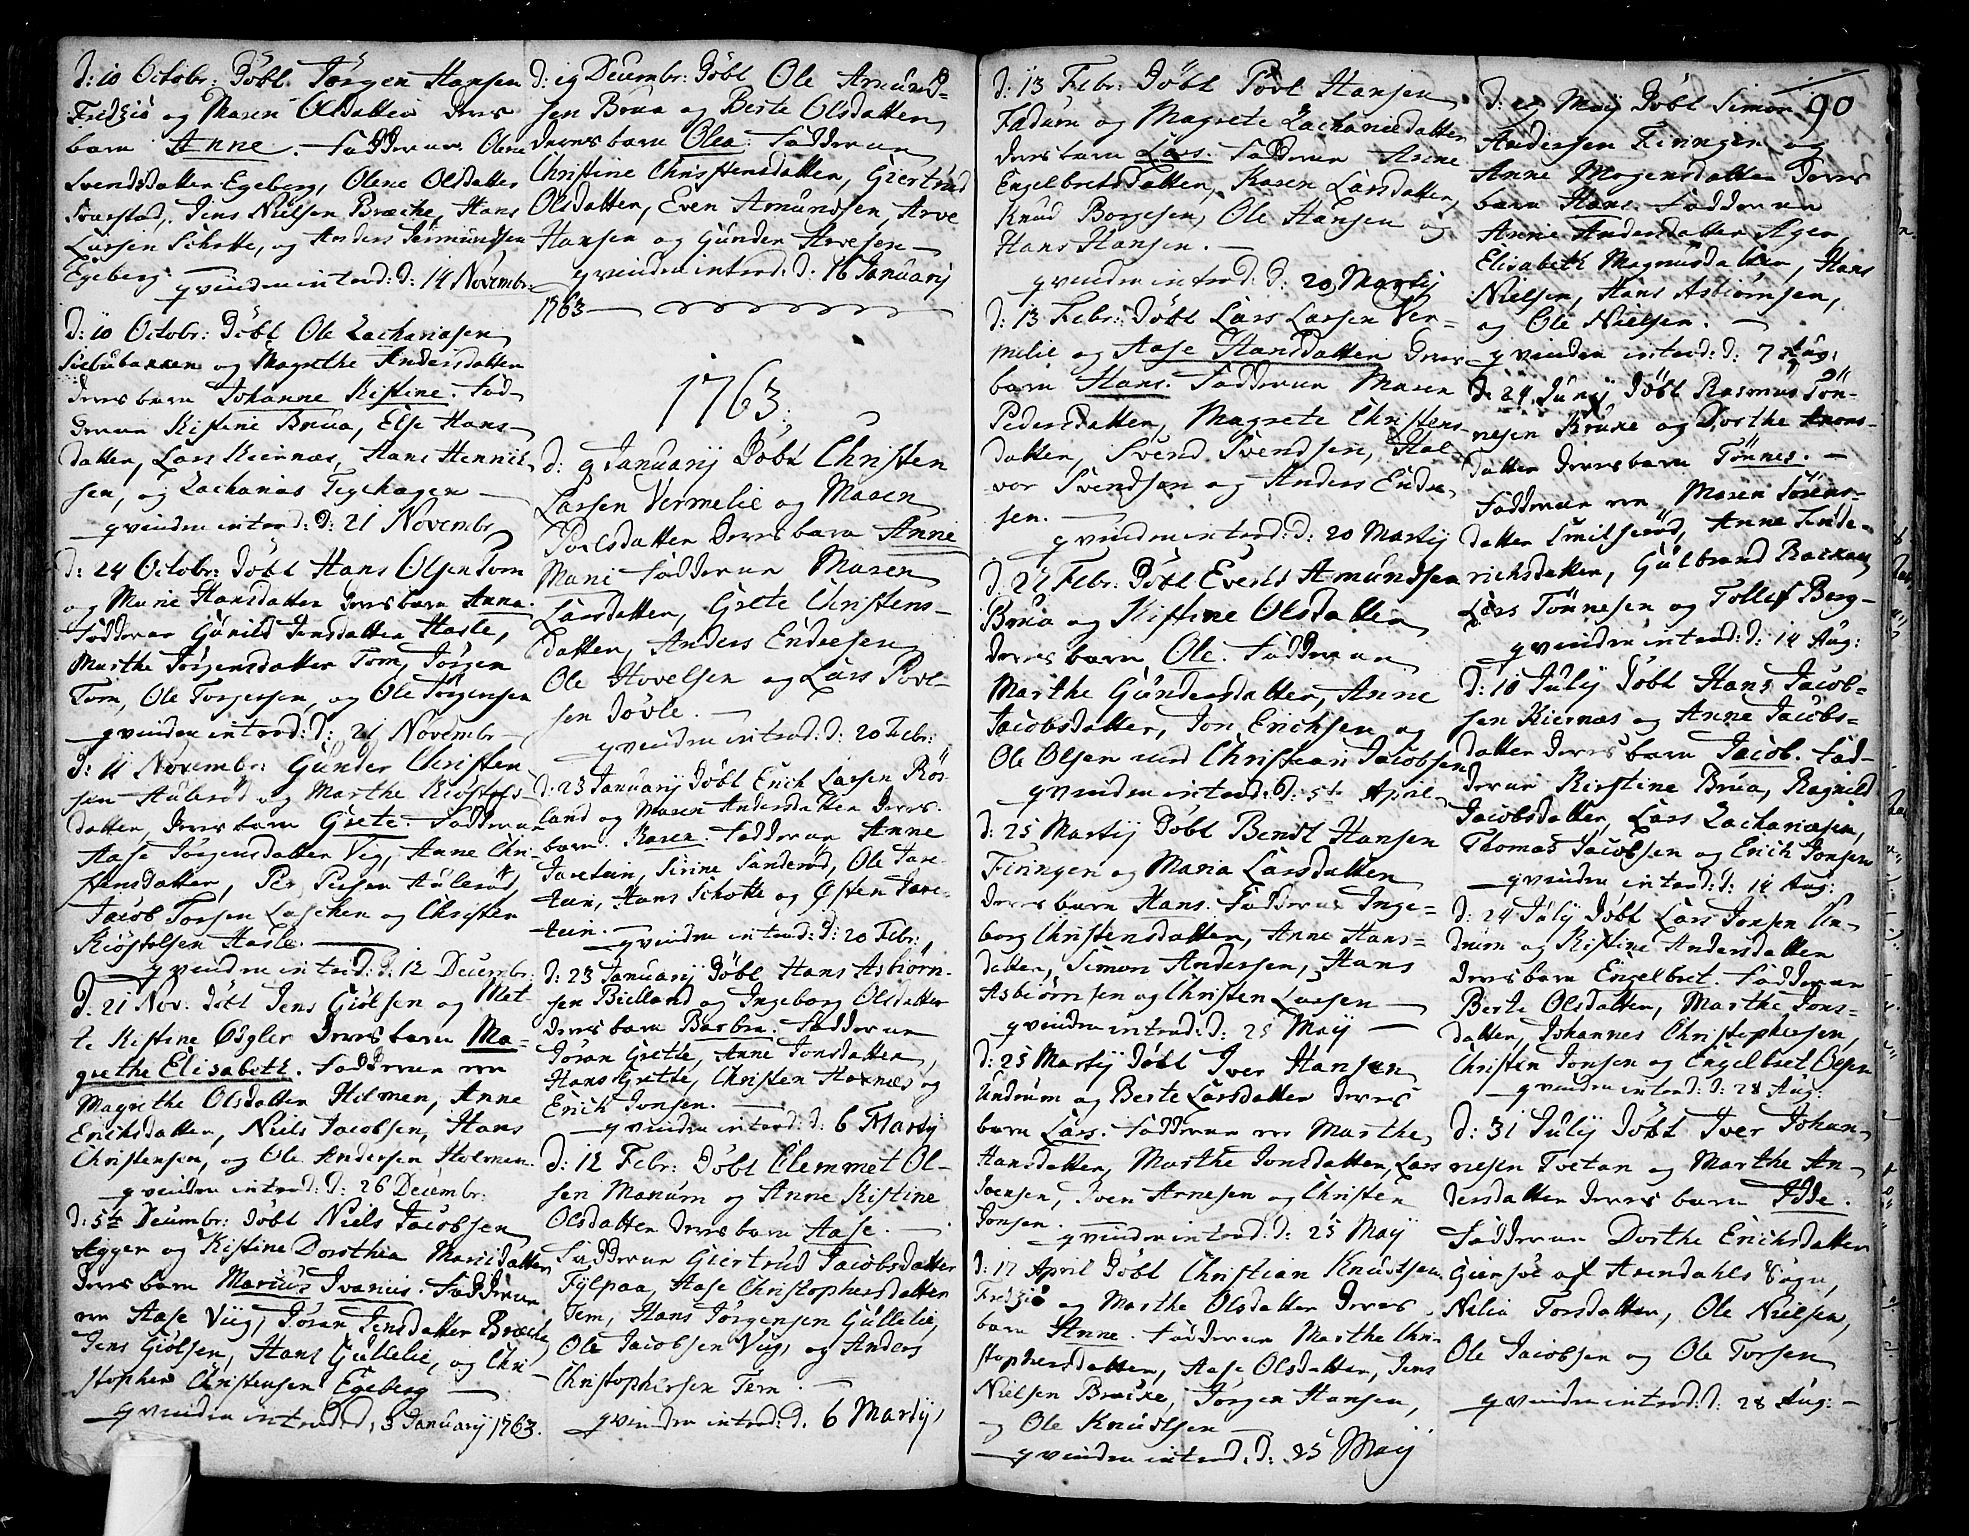 d: 10 Octobr: Döbt Jörgen Hansen
Fredziö og Maren Olsdatter deres
barn Anne. Fadderne Olene
Svendsdatter Egeberg, Olene Olsdatter
Svarstad, Jens Nielsen Bræche, Hans
Larsen Schotte, og Anders Jermundsen
Egeberg
qvinden introd: d: 14 Novembr:
d: 10 Octobr: Döbt Ole Zachariasen
og Magrethe Andersdatter
deres barn Johanne Kistine. Fad-
derne Kistine Brua, Else Hans-
datter, Lars Kiernæs, Hans Henrik-
sen, og Zacharias Tegehagen
qvinden introd: d: 21 Novembr
d: 24 Octobr: Döbt Hans Olsen Tom
og Marie Hansdatter deres barn Anna.
Fadderne Gunild Jensdatter Hasle,
Marthe Jörgensdatter Tom, Jörgen
Tom, Ole Torgersen, og Ole Jörgensen
qvinden introd: d: 21 Novembr
d: 11 Novembr: Gunder Christen
sen Aulerød og Marthe Kiöstels-
datter, deres barn Grete. Fadderne
Aase Jörgensdatter Vig, Anne Chri-
stensdatter, Per Persen Aulerød,
Jacob Torsen Laschen og Christen
Kiöstelsen Hasle.
qvinden introd: d: 12 Decembr
d: 21 Nov: Döbt Jens Giölsen og Met
te Kistine Øgler deres barn Ma-
grethe Elisabeth. Fadderne ere
Magrethe Olsdatter Holmen, Anne
Erichsdatter, Niels Jacobsen, Hans
Christensen, og Ole Andersen Holmen.
qvinden introd: d: 26 Decembr:
d: 5te Decembr: Döbt Niels Jacobsen
Agger og Kistine Dorthea Marisdatter
deres barn Marius Ivarius. Fadderne
ere Aase Viig, Jöran Jensdatter Bræche
Jens Giölsen, Hans Gullelie, og Chri-
stopher Christensen Egeberg
qvinden introd: d, 3 Januarij 1763.
d: 19 Decembr: Döbt Ole Amund-
sen Brua og Berte Olsdatter
deres barn Olea. Fadderne
Christine Christensdatter, Giertrud
Olsdatter, Even Amundsen, Arve
Hansen og Gunder Arvesen
qvinden introd: d: 16 Januarij
1763
1763.
d: 9 Januarij Döbt Christen
Larsen Vermelie og Maren
Povlsdatter deres barn Anne
Marie Fadderne Maren
Larsdatter, Grete Christens-
datter, Anders Endresen
Ole Hovelsen og Lars Povl-
sen Jövle.
qvinden introd: d: 20 Febr:
d: 23 Januarij Döbt Erich Larsen Rös-
land og Maren Andersdatter deres
barn Karen. Fadderne Anne
Jaretein, Sirine Sanderöd, Ole Jare-
tein, Hans Schotte og Østen Jare-
tein.
qvinden introd: d: 20 Febr:
d: 23 Januarij Döbt Hans Asbiörn-
sen Bielland og Ingeborg Olsdatter
deres barn Barbra. Fadderne
Jöran Grette, Anne Jonsdatter,
Hans Grette, Christen Haxnæs og
Erich Jonsen.
qvinden introd: d: 6 Martij
d: 12 Febr: Döbt Clemmet Ol-
sen Manum og Anne Kistine
Olsdatter deres barn Aase.
Fadderne Giertrud Jacobsdatter
Fylpaa, Aase Christophersdatter
Tem, Hans Jörgensen Gullelie,
Ole Jacobsen Viig, og Anders
Christophersen Tem.
qvinden introd: d. 6 Martij
d: 13 Febr: Döbt Povl Hansen
Fadum og Magrete Zachariedatter
deres barn Lars. Fadderne Anne
Engelbretsdatter, Karen Larsdatter,
Knud Borgesen, Ole Hansen og
Hans Hansen.
qvinden introd: d: 20 Martij
d: 13 Febr: Döbt Lars Larsen Ver-
melie og Aase Hansdatter deres
barn Hans. Fadderne Maren
Pedersdatter, Magrete Christens-
datter, Svend Svendsen, Hal-
vor Svendsen og Anders Endre-
sen.
qvinden introd: d: 20 Martij
d: 27 Febr: Döbt Evend Amundsen
Brua og Kistine Olsdatter
deres barn Ole. Fadderne
Marthe Gundersdatter, Anne
Jacobsdatter, Jon Erichsen og
Ole Olsen und Christian Jacobsen
qvinden introd: d: 5te April
d: 25 Martij Döbt Bendt Hansen
Firingen og Maria Larsdatter
deres barn Hans. Fadderne Inge-
borg Christensdatter, Anne Hans-
datter, Simon Andersen, Hans
Asbiörnsen og Christen Larsen
qvinden introd: d: 25 Maij
d: 25 Martij Döbt Iver Hansen
Undrum og Berte Larsdatter deres
barn Lars. Fadderne ere Marthe
Hansdatter, Marthe Jonsdatter, Lars
Iversen, Iven Arnesen og Christen
Jonsen.
qvinden introd: d: 25 Maij
d: 17 April Döbt Christian Knudtsen
Fredziö og Marthe Olsdatter deres
barn Anne. Fadderne Marthe Chri-
stophersdatter, Aase Olsdatter, Jens
Nielsen Bræche, Jörgen Hansen,
og Ole Knudtsen
qvinden introd: d: 25 Maij
90
d: 29 Maij Döbt Simon
Andersen Firingen og
Anne Mogensdatter deres
barn Hans. Fadderne
Anne Andersdatter Ager,
Elisabeth Magnusdatter, Hans
Nielsen, Hans Asbiörnsen,
og Ole Nielsen.
qvinden introd: d: 7 Aug:
d: 24 Junij Döbt Rasmus Tön-
nesen Bruxe og Dorthe Anders-
datter deres barn Tönnes.
Fadderne ere Maren Sörens-
datter Smilserød, Anne Fride-
richsdatter, Gulbrand Backen,
Lars Tönnesen og Tollef Berg
qvinden introd: d: 14 Aug:
d: 10 Julij Döbt Hans Jacob-
sen Kiernæs og Anne Jacobs-
datter deres barn Jacob. Fad-
derne Kirstine Brua, Ragnild
Jacobsdatter, Lars Zachariæsen,
Thomas Jacobsen og Erich Jonsen
qvinden introd: d: 14 Aug:
d: 24 Julij Döbt Lars Jonsen Un-
drum og Kistine Andersdatter
deres barn Engelbret. Fadderne
Berte Olsdatter, Marthe Jons-
datter, Johannes Christophersen,
Christen Jonsen og Engelbret Olsen
qvinden introd: d: 28 Aug:
d: 31 Julij Döbt Iver Johan-
nesen Tvetan og Marthe An-
dersdatter deres barn Idde.
Fadderne Dorthe Erichsdatter
Giersøe af Arendahls Sogn,
Nilia Torsdatter, Ole Nielsen,
Ole Jacobsen og Ole Torsen
qvinden introd: d: 28 Aug: